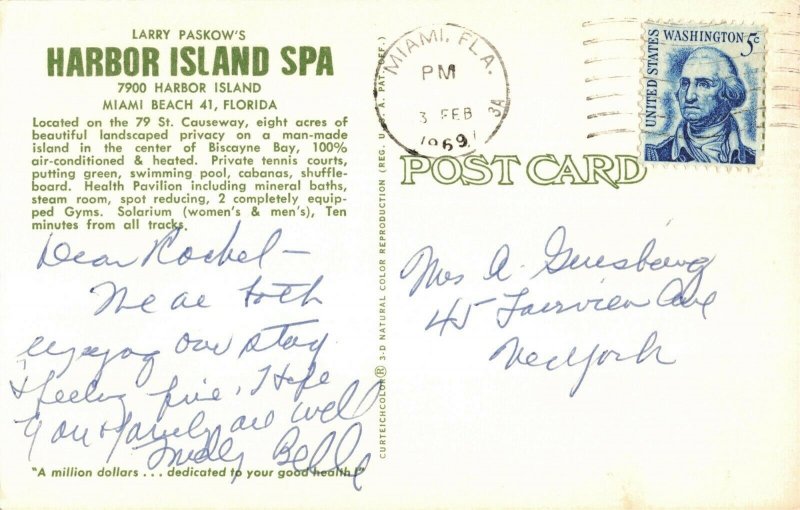 LARRY PASKOW'S
HARBOR ISLAND SPA
7900 HARBOR ISLAND
MIAMI BEACH 41, FLORIDA
Located on the 79 St. Causeway, eight acres of
beautiful landscaped privacy on a man-made
island in the center of Biscayne Bay, 100%
air-conditioned & heated. Private tennis courts,
putting green, swimming pool, cabanas, shuffle-
board. Health Pavilion including mineral baths,
steam room, spot reducing, 2 completely equip-
ped Gyms. Solarium (women's & men's), Ten
minutes from all tracks.
Dear Rochel —
We are both
enjoying our stay
& feeling fine, I Hope
you & family are well
Belle
"A million dollars . . . dedicated to your good health!"
CURTEICHCOLOR® 3-D NATURAL COLOR REPRODUCTION (REG. U.S.A. PAT. OFF.)
MIAMI, FLA.
PM
3 FEB
1969
3A
UNITED STATES
WASHINGTON 5c
POST CARD
Mrs A.
45 Fairview Ave
New York